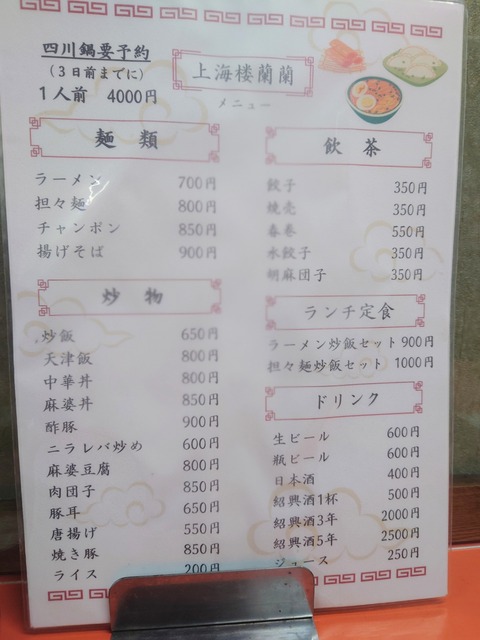 四川鍋要予約
(3日前までに)
1人前 4000円
上海楼蘭蘭
メニュー
麺類
ラーメン 700円
担々麺 800円
チャンポン 850円
揚げそば 900円
炒物
炒飯 650円
天津飯 800円
中華丼 800円
麻婆丼 850円
酢豚 900円
ニラレバ炒め 600円
麻婆豆腐 800円
肉団子 850円
豚耳 650円
唐揚げ 550円
焼き豚 850円
ライス 200円
飲茶
餃子 350円
焼売 350円
春巻 550円
水餃子 350円
胡麻団子 350円
ランチ定食
ラーメン炒飯セット 900円
担々麺炒飯セット 1000円
ドリンク
生ビール 600円
瓶ビール 600円
日本酒 400円
紹興酒1杯 500円
紹興酒3年 2000円
紹興酒5年 2500円
ジュース 250円